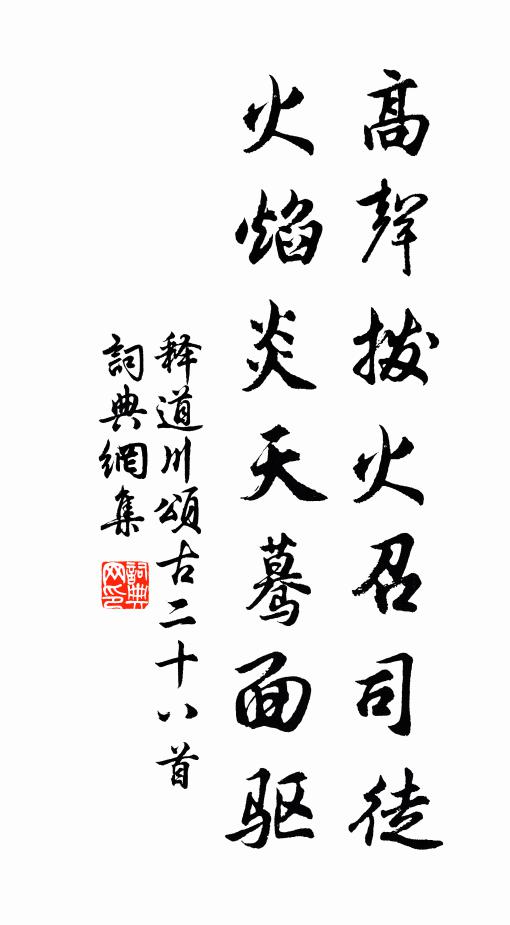 高聲拔火召司徒
火焰炎天驀面驱
释道川頌古二十八首
詞典網集
詞典网印